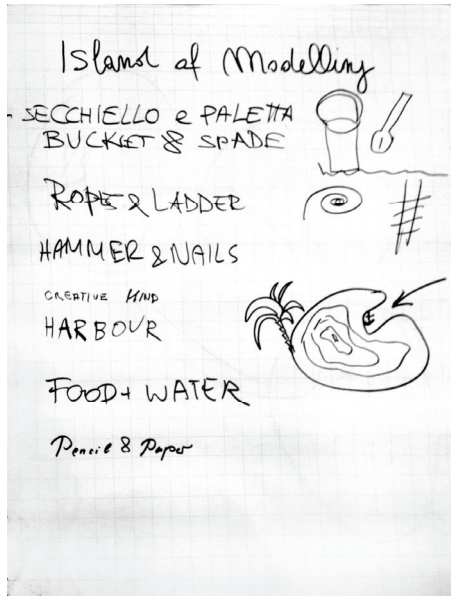 Island of Modelling
- SECCHIELLO e PALETTA
BUCKET & SPADE
ROPE & LADDER
HAMMER & NAILS
CREATIVE MIND
HARBOUR
FOOD + WATER
Pencil & Paper